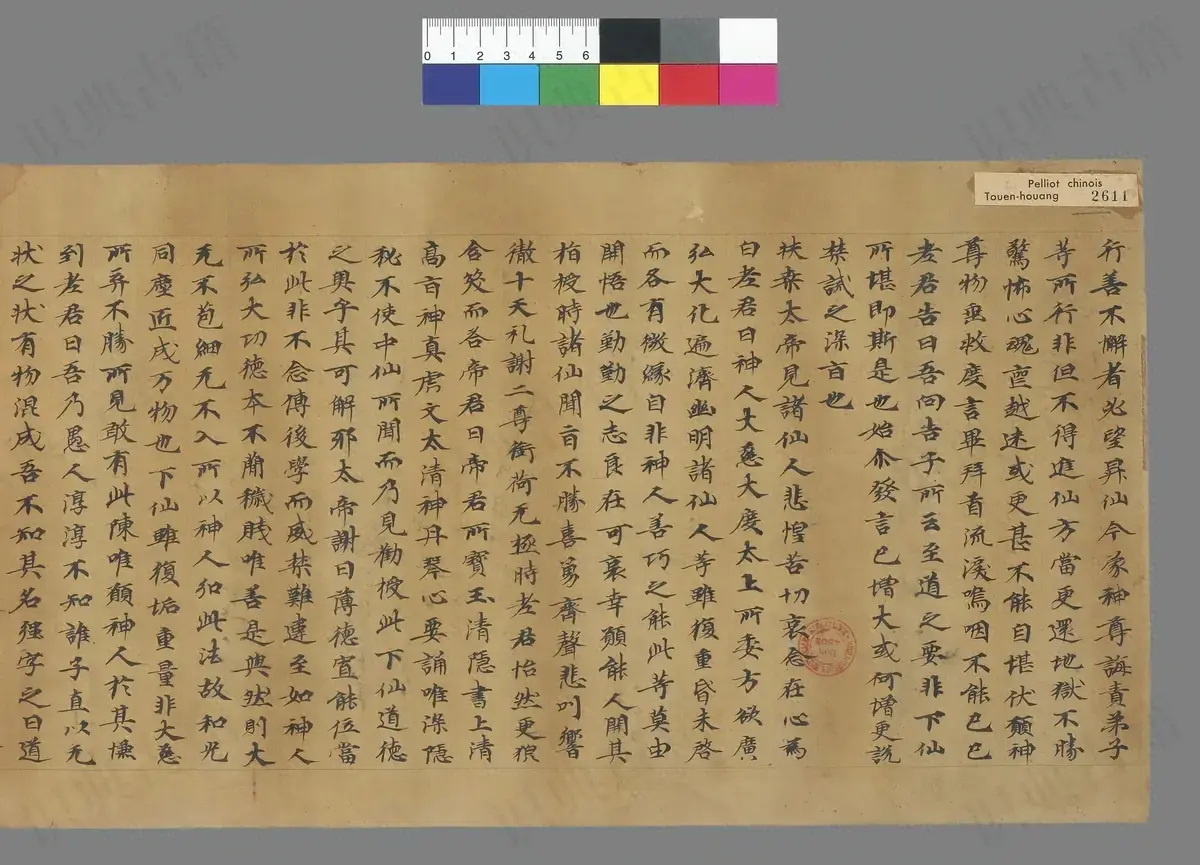 Pelliot chinois
Touen-houang 2611
0 1 2 3 4 5 6
行善不懈者必望昇仙今蒙神尊誨責弟子
等所行非但不得進仙方當更還地獄不勝
驚怖心魂亶越迷或更甚不能自堪伏願神
尊物垂救度言畢拜首流淚嗚咽不能已已
老君告曰吾向告子所云至道之要非下仙
所堪即斯是也始尒發言已增大或何增更說
禁試之深旨也
扶桒太帝見諸仙人悲惶苦切哀念在心為
白老君曰神人大慈大度太上所委方欲廣
弘大化遍濟幽明諸仙人等雖復重昏未啓
而各有微緣自非神人善巧之能此等莫由
開悟也勤勤之志良在可哀幸願能人開其
指授時諸仙聞旨不勝喜勇齊聲悲叫響
徹十天礼謝二尊銜荷无極時老君怡然更猊
含笑而各帝君曰帝君所寶玉清隱書上清
高旨神真虎文太清神丹琴心要誦唯深隱
秘不使中仙所聞而乃見勸授此下仙道德
之奧乎其可解邪太帝謝曰薄德宜能位當
於此非不念傅後學而威禁難違至如神人
所弘大功德本不蕳穢賤唯善是與然則大
无不苞細无不入所以神人弘此法故和光
同塵匠成万物也下仙雖復垢重量非大慈
所弃不勝所見敢有此陳唯願神人於其慊
到老君曰吾乃愚人淳淳不知誰子直以无
狀之狀有物混成吾不知其名强字之曰道